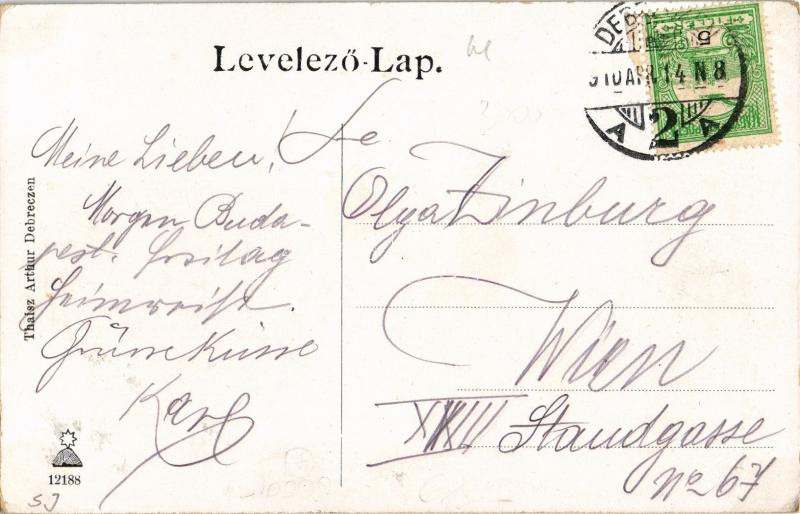 Levelező-Lap.
Meine Lieben,
Morgen Buda-
pest. Freitag
Heimreise.
Grüsse Küsse
Karl
Olga Zinburg
Wien
XVIII Staudgasse
No 67
DEB
910 APR. 14 N 8
A 2 A
5
Thaisz Arthur Debreczen
12188
SJ